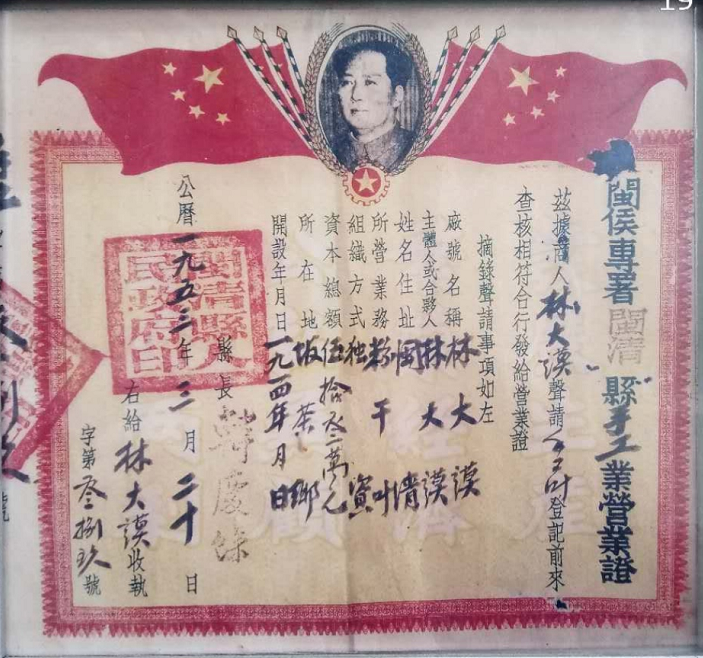 19
閩侯專署閩清縣手工業營業證
茲據商人林大謨聲請 登記前來
查核相符合行發給營業證
摘錄聲請事項如左
廠號名稱 林大謨
主體人或合夥人 林大謨
姓名住址 閩清
所營業務 粉干
組織方式 独資
資本總額 伍拾 萬元
所在地 坂 鄉
開設年月日 一九一四年月日
縣長
公曆一九五三年三月二十日
右給林大謨收執
字第叁捌玖號
閩清縣人民政府印